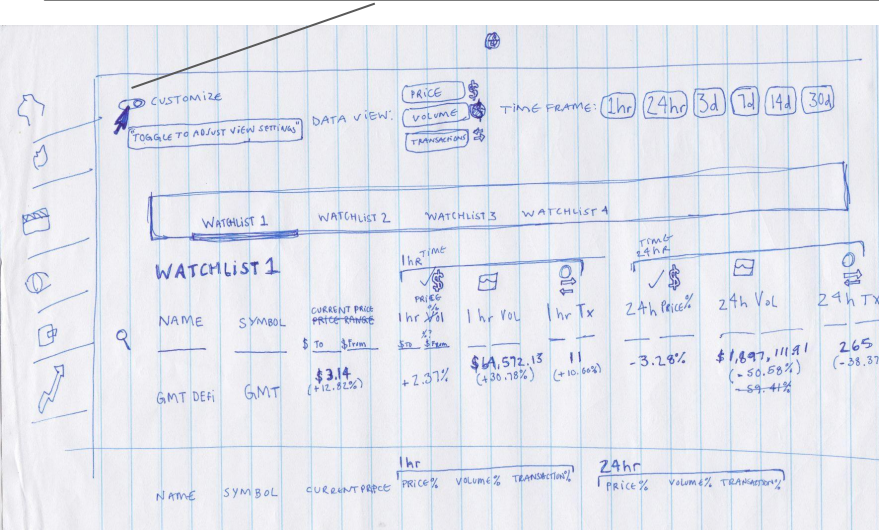 CUSTOMIZE
"TOGGLE TO ADJUST VIEW SETTINGS"
DATA VIEW:
PRICE $
VOLUME
TRANSACTIONS
TIME FRAME: 1hr 24hr 3d 7d 14d 30d
WATCHLIST 1 WATCHLIST 2 WATCHLIST 3 WATCHLIST 4
WATCHLIST 1
1hr TIME
TIME 24hR
$
$
NAME
SYMBOL
CURRENT PRICE
PRICE RANGE
$ To $From
PRICE
%
1hr Vol
%?
$To $From
1hr VOL
1hr Tx
24h PRICE%
24h VOL
24h Tx
GMT DEFi
GMT
$3.14
(+12.82%)
+2.37%
$64,572.13
(+30.78%)
11
(+10.00%)
-3.28%
$1,897,111.91
(-50.58%)
-59.41%
265
(-38.37
1hr
24hr
NAME SYMBOL CURRENT PRICE PRICE% VOLUME% TRANSACTION% PRICE% VOLUME% TRANSACTION%